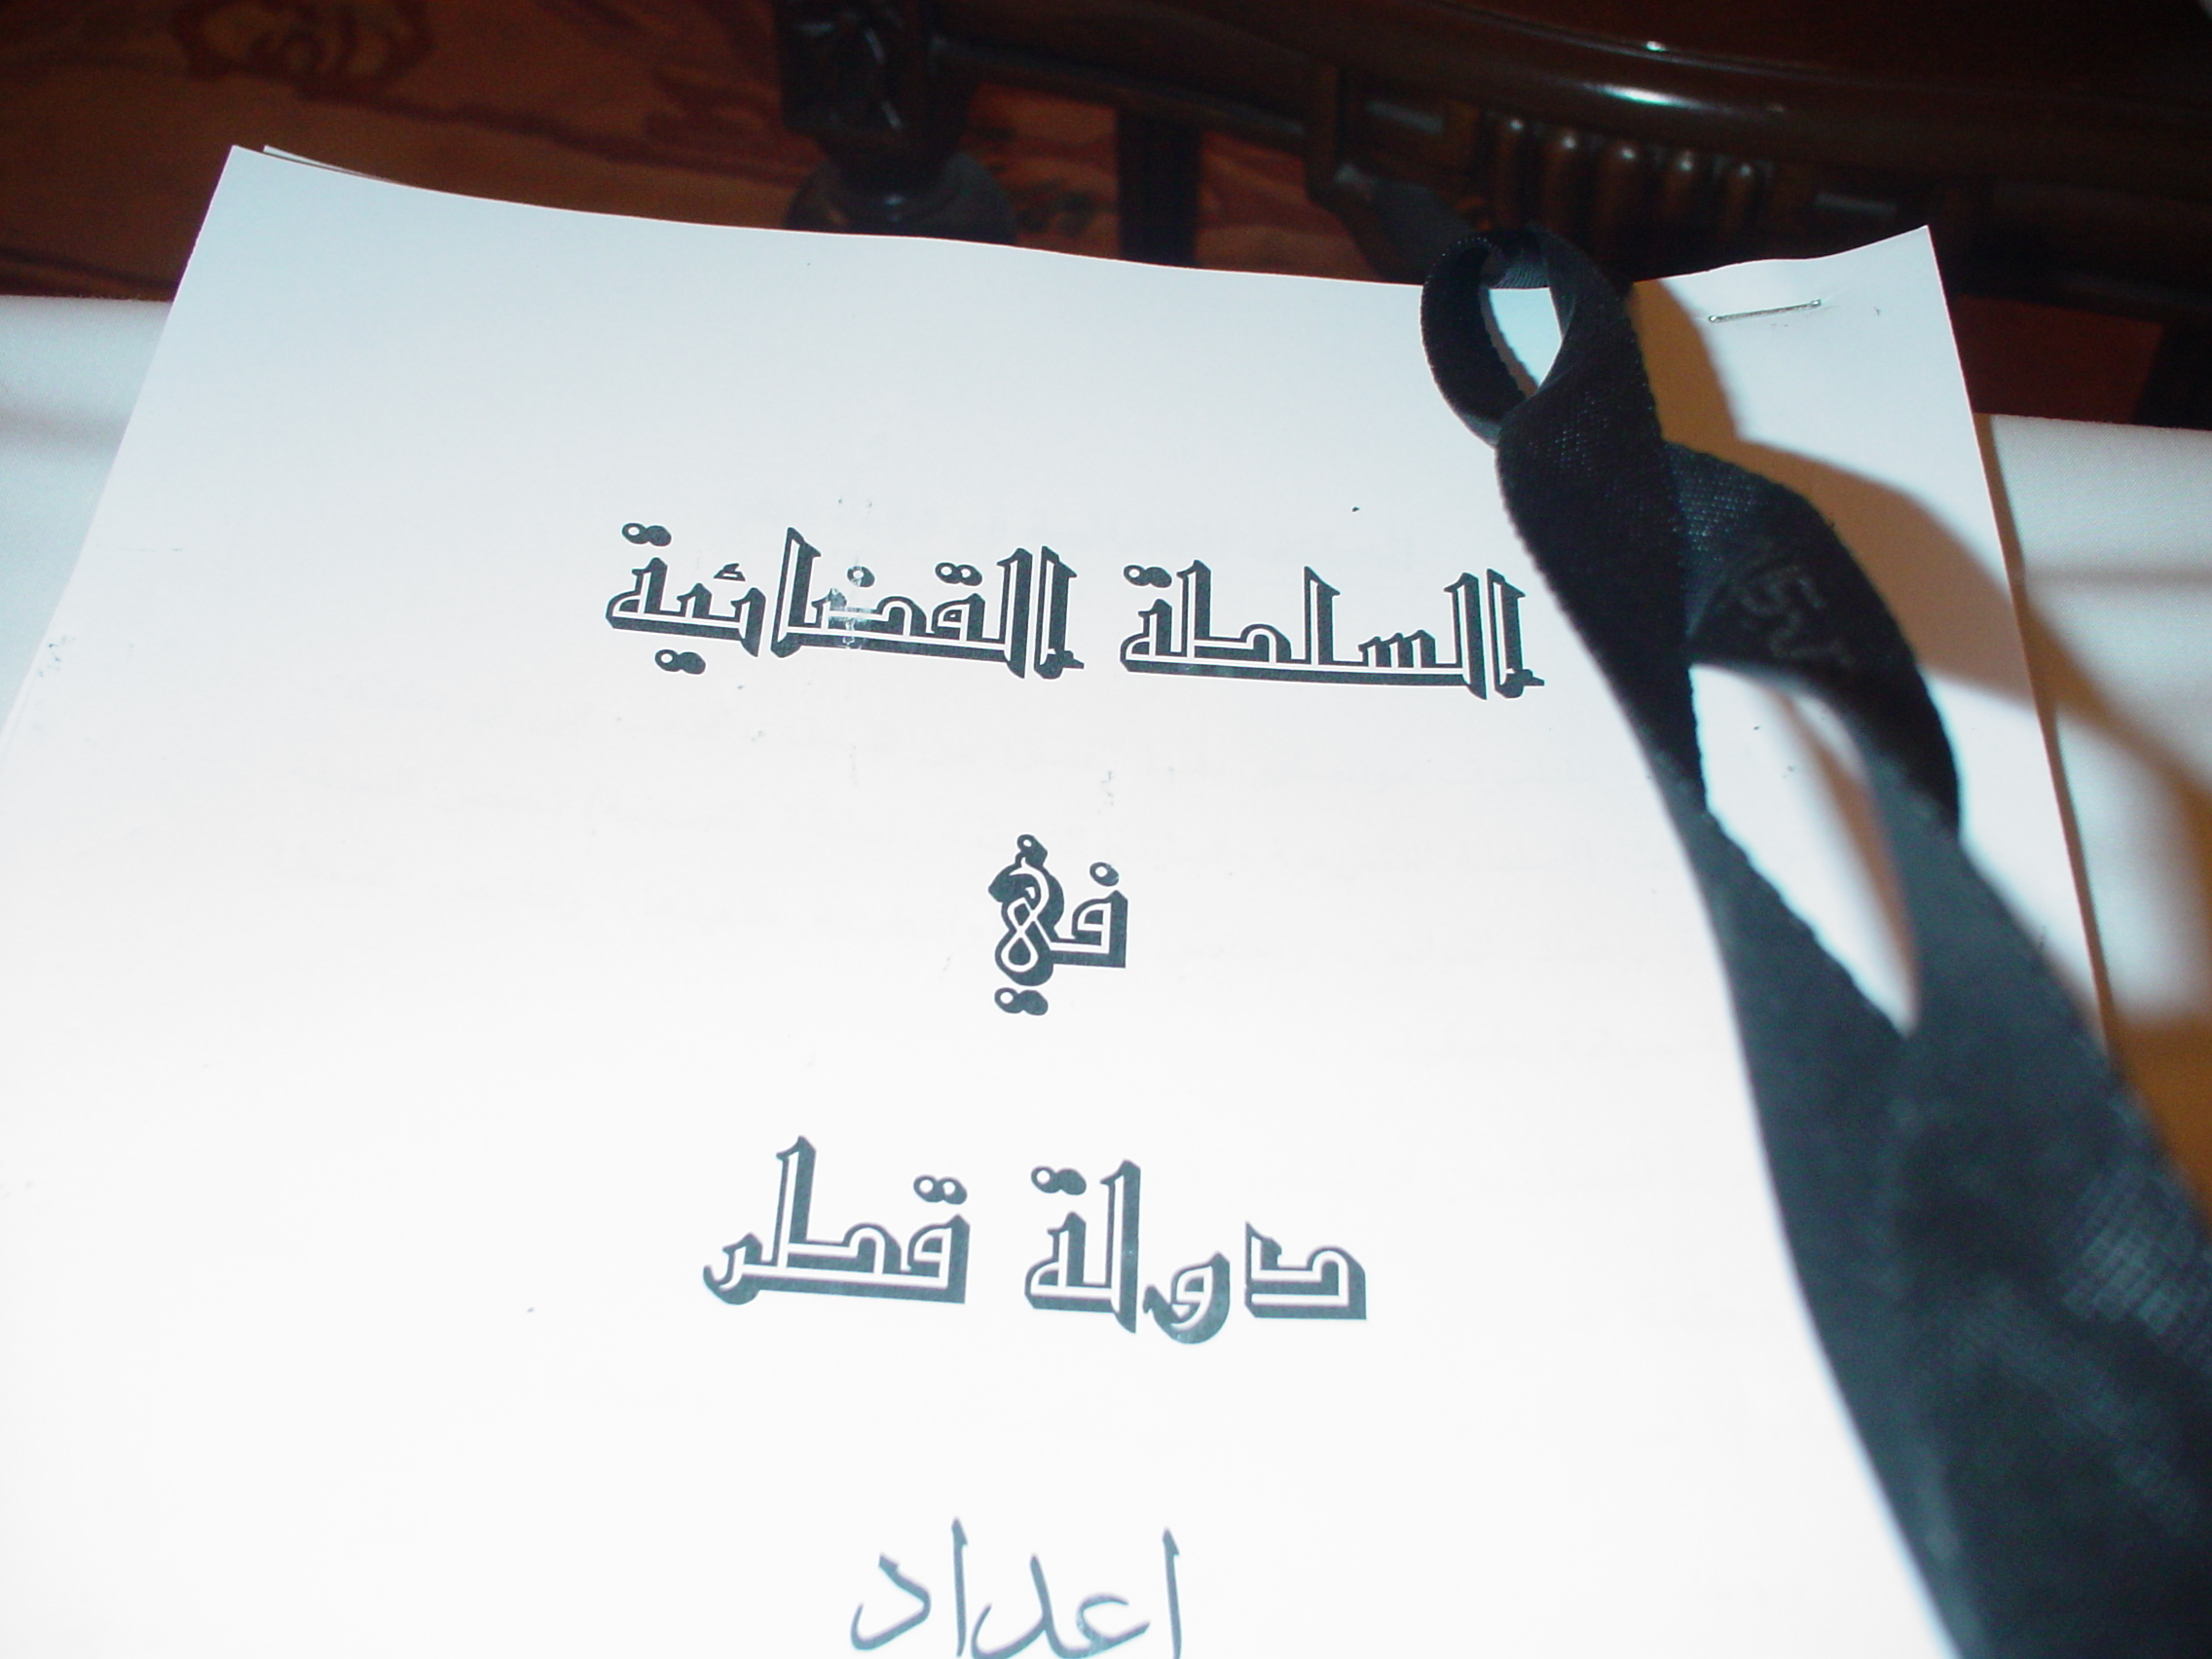 السلطة القضائية
في
دولة قطر
اعداد